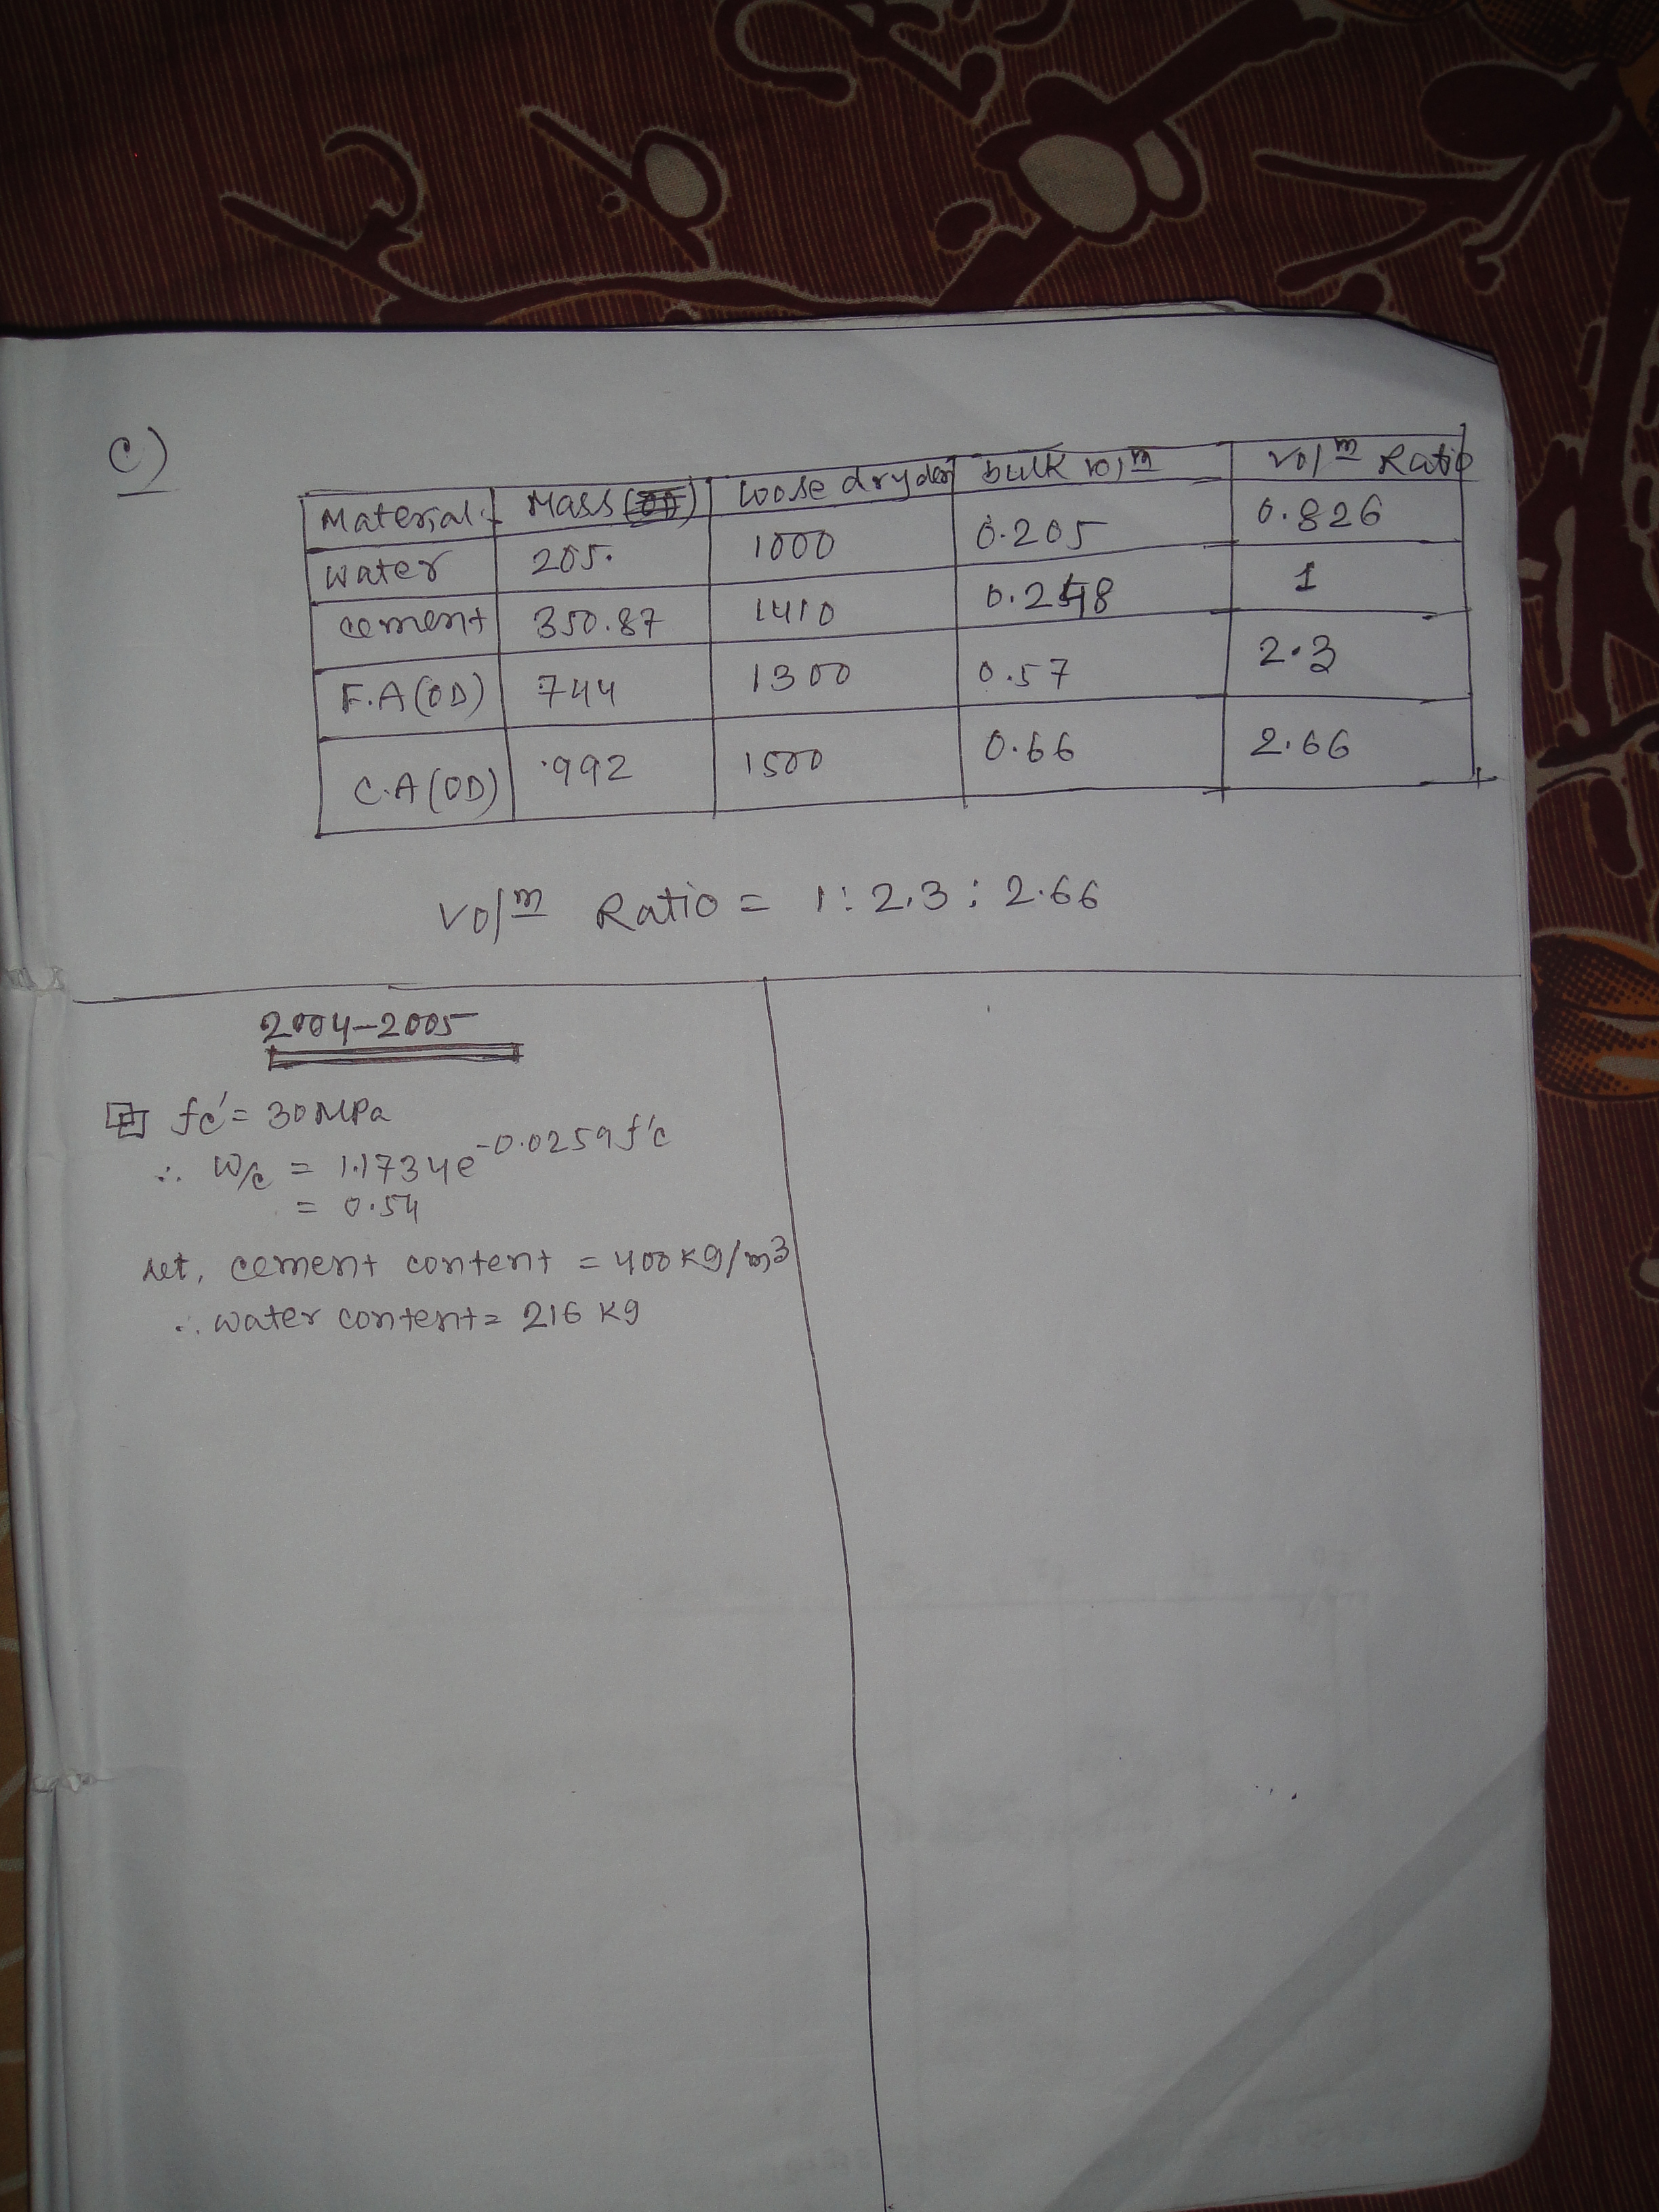 c)
Material Mass loose dry den bulk vol<u>m</u> vol<u>m</u> Ratio
water 205. 1000 0.205 0.826
cement 350.87 1410 0.248 1
F.A(OD) 744 1300 0.57 2.3
C.A(OD) 992 1500 0.66 2.66
vol<u>m</u> Ratio = 1: 2.3 : 2.66
2004-2005
fc' = 30 MPa
∴ W/c = 1.1734e^-0.0259f'c
= 0.54
let, cement content = 400 kg/m3
∴ water content = 216 kg